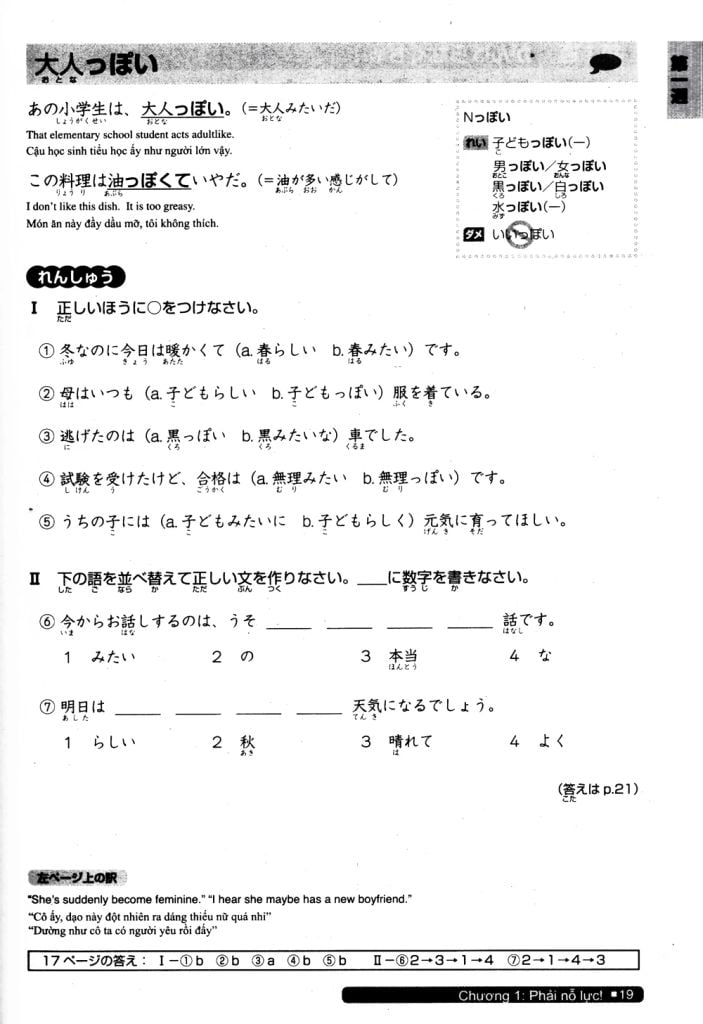 大人っぽい
おとな
第一週
あの小学生は、大人っぽい。(=大人みたいだ)
しょうがくせい おとな おとな
That elementary school student acts adultlike.
Cậu học sinh tiểu học ấy như người lớn vậy.
この料理は油っぽくていやだ。(=油が多い感じがして)
りょうり あぶら あぶら おお かん
I don't like this dish. It is too greasy.
Món ăn này đầy dầu mỡ, tôi không thích.
Nっぽい
れい 子どもっぽい(ー)
こ
男っぽい/女っぽい
おとこ おんな
黒っぽい/白っぽい
くろ しろ
水っぽい(ー)
みず
ダメ いいっぽい
れんしゅう
Ⅰ 正しいほうに○をつけなさい。
ただ
① 冬なのに今日は暖かくて(a.春らしい b.春みたい)です。
ふゆ きょう あたた はる はる
② 母はいつも(a.子どもらしい b.子どもっぽい)服を着ている。
はは こ こ ふく き
③ 逃げたのは(a.黒っぽい b.黒みたいな)車でした。
に くろ くろ くるま
④ 試験を受けたけど、合格は(a.無理みたい b.無理っぽい)です。
しけん う ごうかく むり むり
⑤ うちの子には(a.子どもみたいに b.子どもらしく)元気に育ってほしい。
こ こ こ げんき そだ
Ⅱ 下の語を並べ替えて正しい文を作りなさい。____に数字を書きなさい。
した ご なら か ただ ぶん つく すうじ か
⑥ 今からお話しするのは、うそ ____ ____ ____ ____ 話です。
いま はな はなし
1 みたい 2 の 3 本当 4 な
ほんとう
⑦ 明日は ____ ____ ____ ____ 天気になるでしょう。
あした てんき
1 らしい 2 秋 3 晴れて 4 よく
あき は
(答えは p.21)
こた
左ページ上の訳
"She's suddenly become feminine." "I hear she maybe has a new boyfriend."
"Cô ấy, dạo này đột nhiên ra dáng thiếu nữ quá nhỉ"
"Dường như cô ta có người yêu rồi đấy"
17ページの答え: Ⅰ-①b ②b ③a ④b ⑤b Ⅱ-⑥2→3→1→4 ⑦2→1→4→3
Chương 1: Phải nỗ lực! ■19